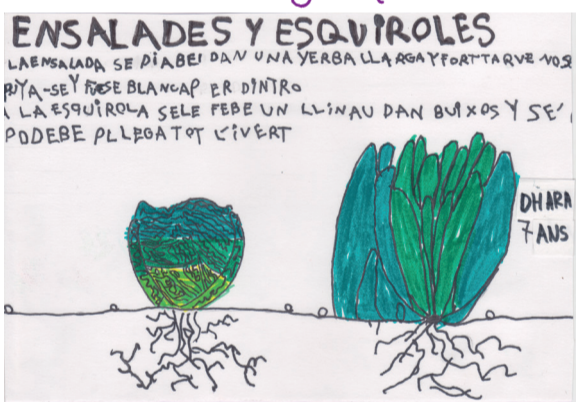 ENSALADES Y ESQUIROLES
LA ENSALADA SE DIABEI DAN UNA YERBA LLARGA Y FORTTA QUE NO SE
Y FUESE BLANCA P ER DINTRO
A LA ESQUIROLA SELE FEBE UN LLINAU DAN BUIXOS Y SE'
PODEBE PLLEGA TOT L'IVERT
DHARA
7 ANS